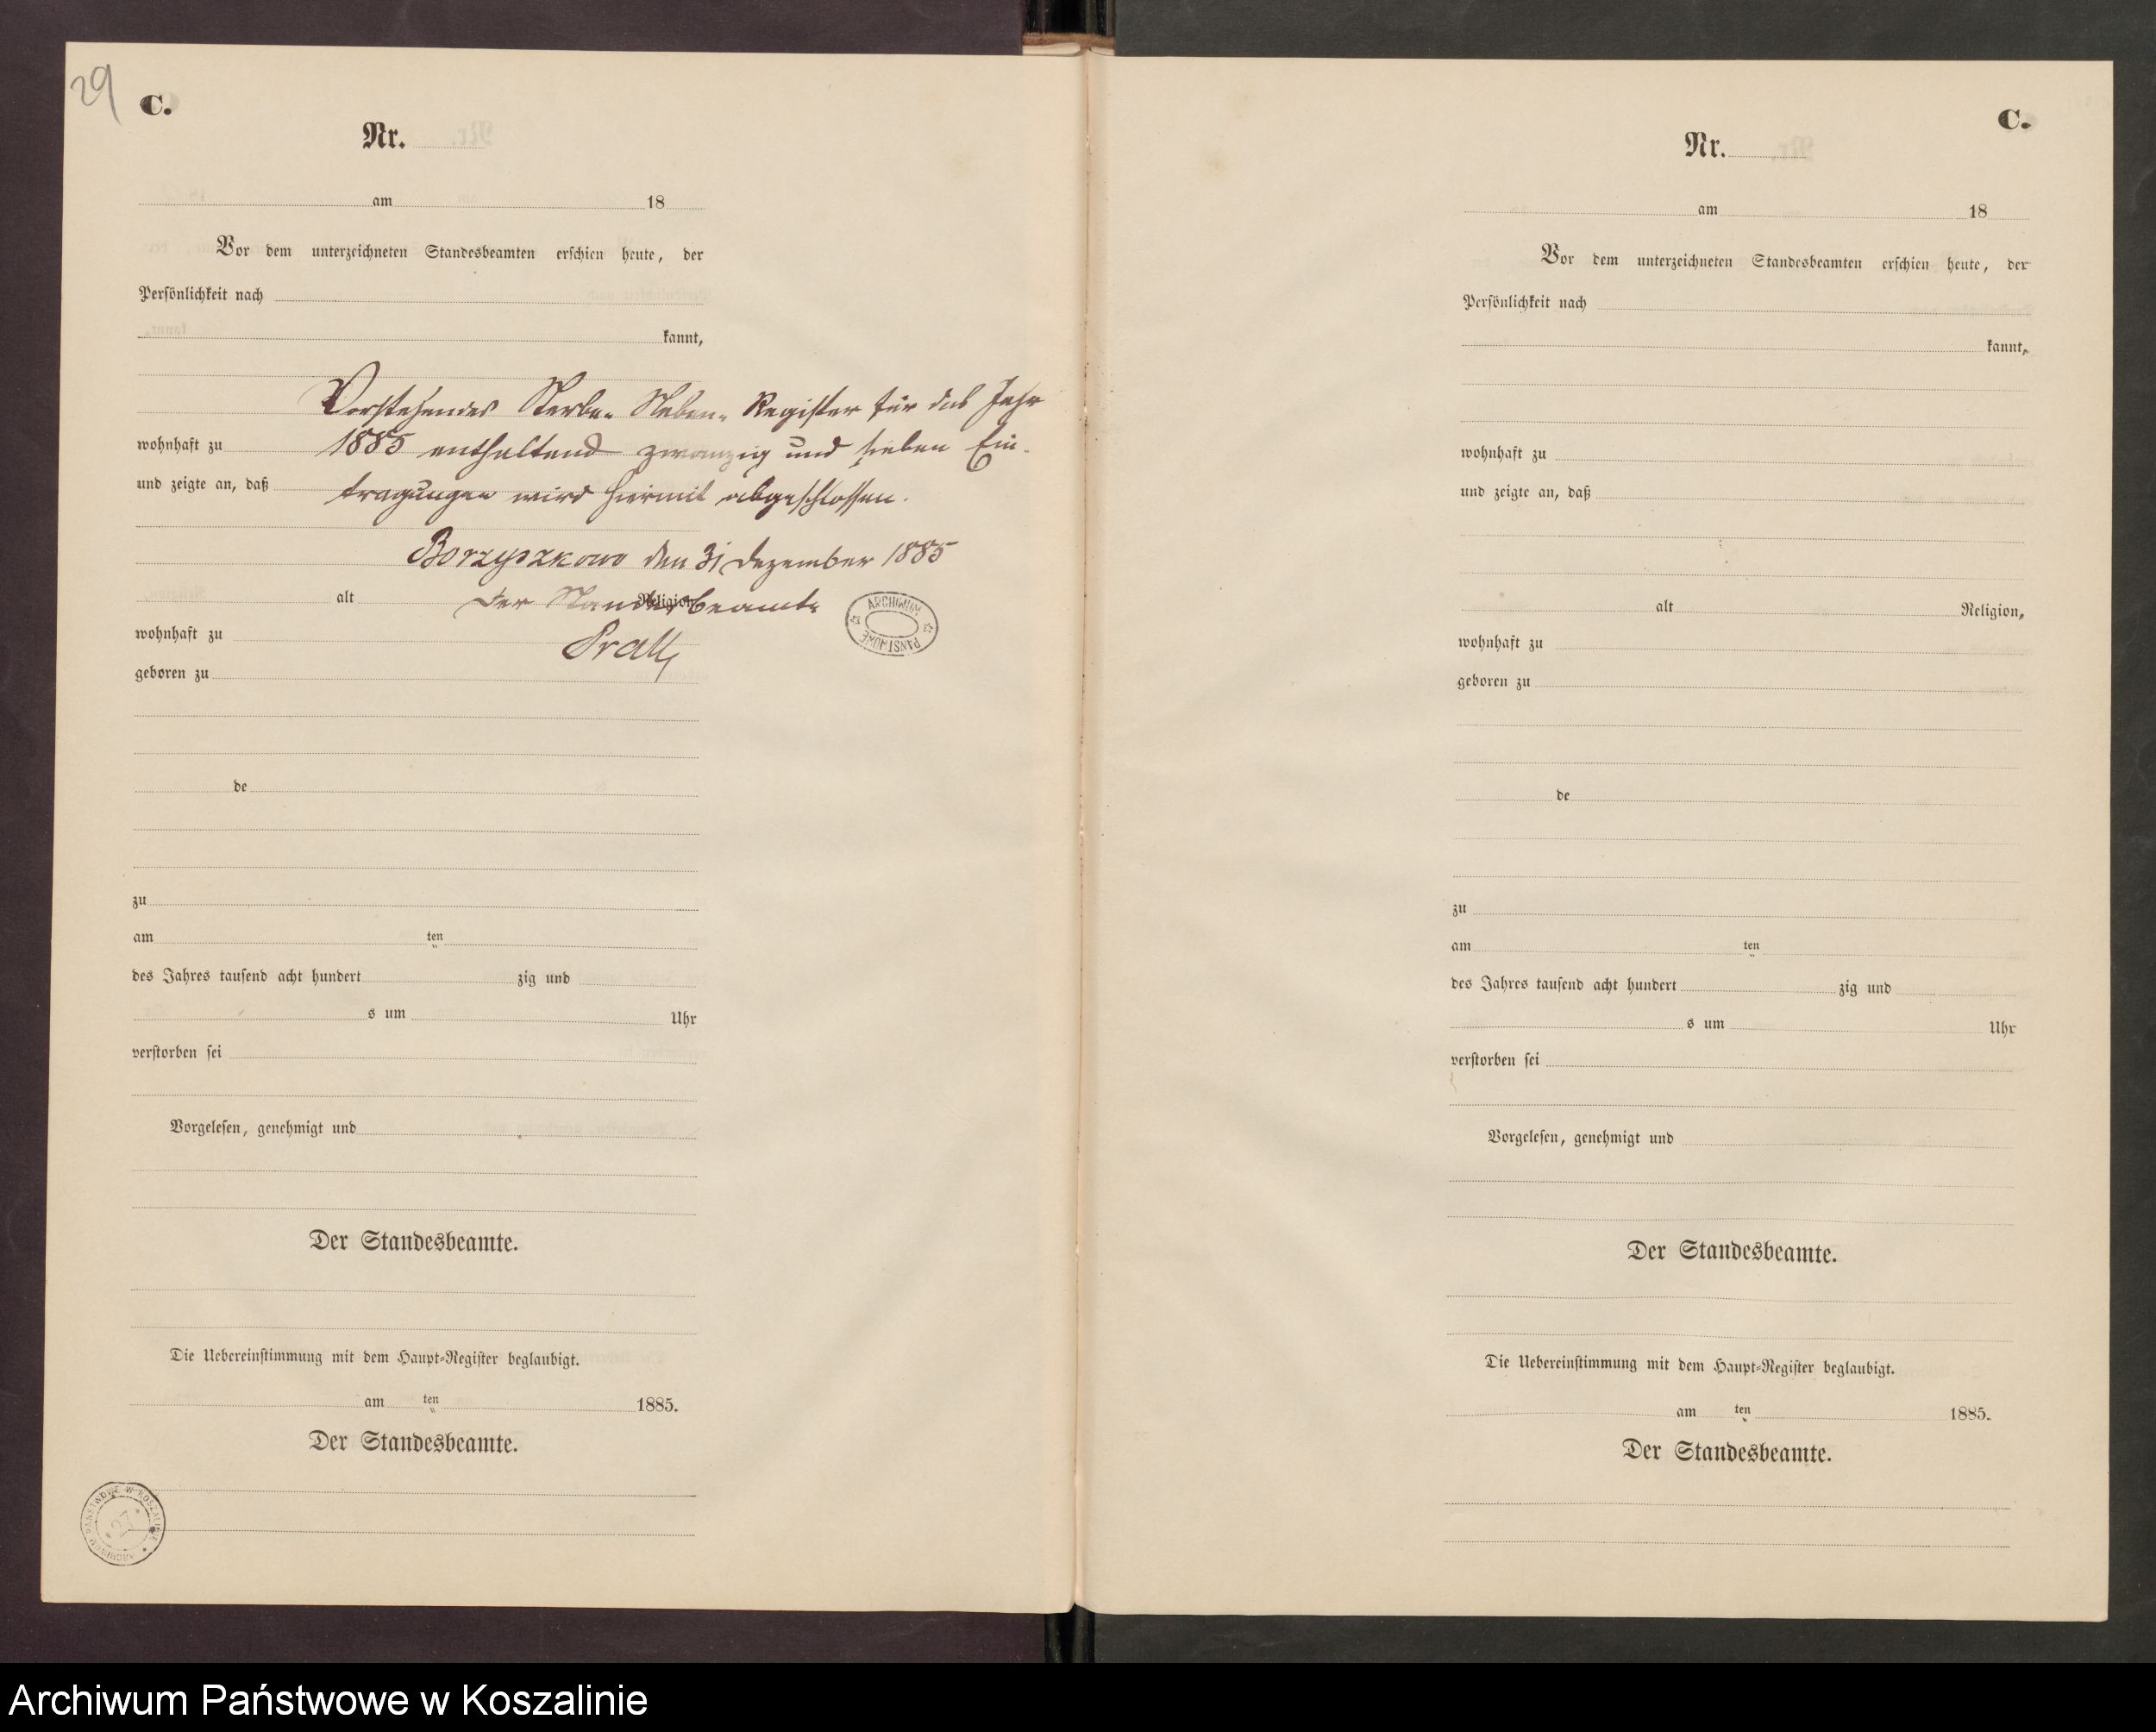 29
C.
Nr.
am 18
Vor dem unterzeichneten Standesbeamten erschien heute, der
Persönlichkeit nach
kannt,
Vorstehendes Sterbe- Neben- Register für das Jahr
wohnhaft zu 1885 enthaltend zwanzig und sieben Ein-
und zeigte an, daß tragungen wird hiermit abgeschlossen.
Borzyszkowo den 31 Dezember 1885
alt Religion,
Der Standesbeamte
wohnhaft zu
geboren zu
ARCHIWUM PAŃSTWOWE
de
zu
am ten
des Jahres tausend acht hundert zig und
s um Uhr
verstorben sei
Vorgelesen, genehmigt und
Der Standesbeamte.
Die Uebereinstimmung mit dem Haupt-Register beglaubigt.
am ten 1885.
Der Standesbeamte.
ARCHIWUM PAŃSTWOWE W KOSZALINIE
27
C.
Nr.
am 18
Vor dem unterzeichneten Standesbeamten erschien heute, der
Persönlichkeit nach
kannt,
wohnhaft zu
und zeigte an, daß
alt Religion,
wohnhaft zu
geboren zu
de
zu
am ten
des Jahres tausend acht hundert zig und
s um Uhr
verstorben sei
Vorgelesen, genehmigt und
Der Standesbeamte.
Die Uebereinstimmung mit dem Haupt-Register beglaubigt.
am ten 1885.
Der Standesbeamte.
Archiwum Państwowe w Koszalinie